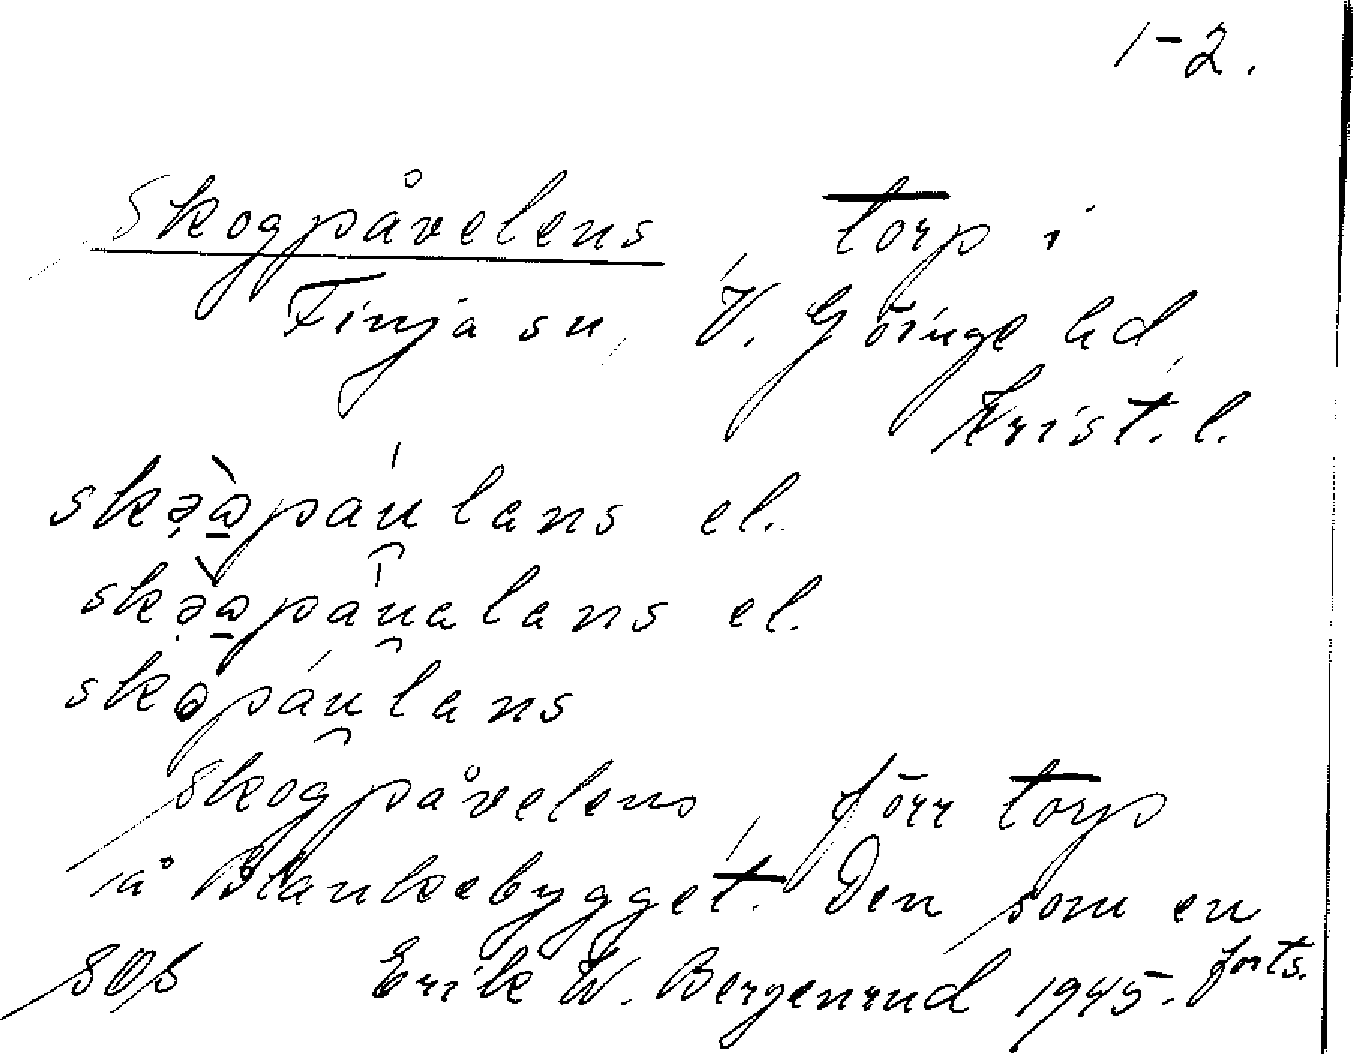 1-2.
Skogpåvelens, torp i
Finja sn, V. Göinge hd,
Krist. l.
skə̣ὰ̱páu̯lans el.
skə̣ὰ̱páu̯alans el.
skɷpáu̯lans
Skogpåvelens, förr torp
å Blankebygget. Den som en
SOS Erik W. Bergenrud 1945. forts.